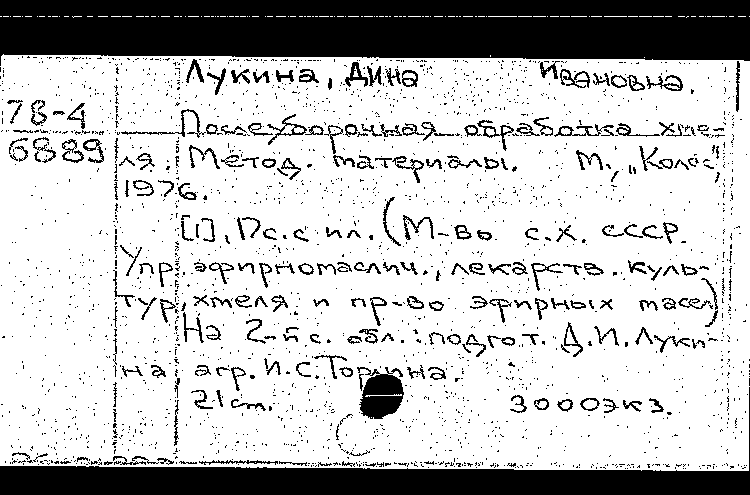 Лукина, Дина Ивановна.
78-4
6889
Послеуборочная обработка хме-
ля. Метод. материалы. М., „Колос",
1976.
[1], 17с. с ил. (М-во с.х. СССР.
Упр. эфирномаслич., лекарств. куль-
тур, хмеля и пр-во эфирных масел)
На 2-й с. обл.: подгот. Д.И. Луки-
на агр. И.С.
21 cm. 3000экз.